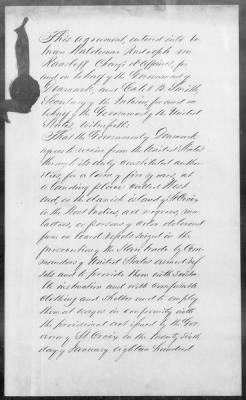 This agreement, entered into be
tween Waldemar Rudolph von
Raasloff Chargé d'Affaires, for
and on behalf of the Government of
Denmark, and Caleb B. Smith,
Secretary of the Interior for and on
behalf of the Government of the United
States witnesseth:
That the Government of Denmark
agrees to receive from the United States
through its duly constituted author
ities for a term of five years, at
a landing place under West
End, on the danish island of St Croix
in the West Indies, all negroes, mu-
lattoes, or persons of color delivered
from on board vessels seized in the
prevention of the Slave trade by Com-
manders of United States armed ves-
sels and to provide them with suita-
ble instruction and with comfortable
clothing and shelter and to employ
them at wages in conformity with
the provisional act issued by the Gov.
ernor of St Croix on the twenty sixth
day of January eighteen hundred